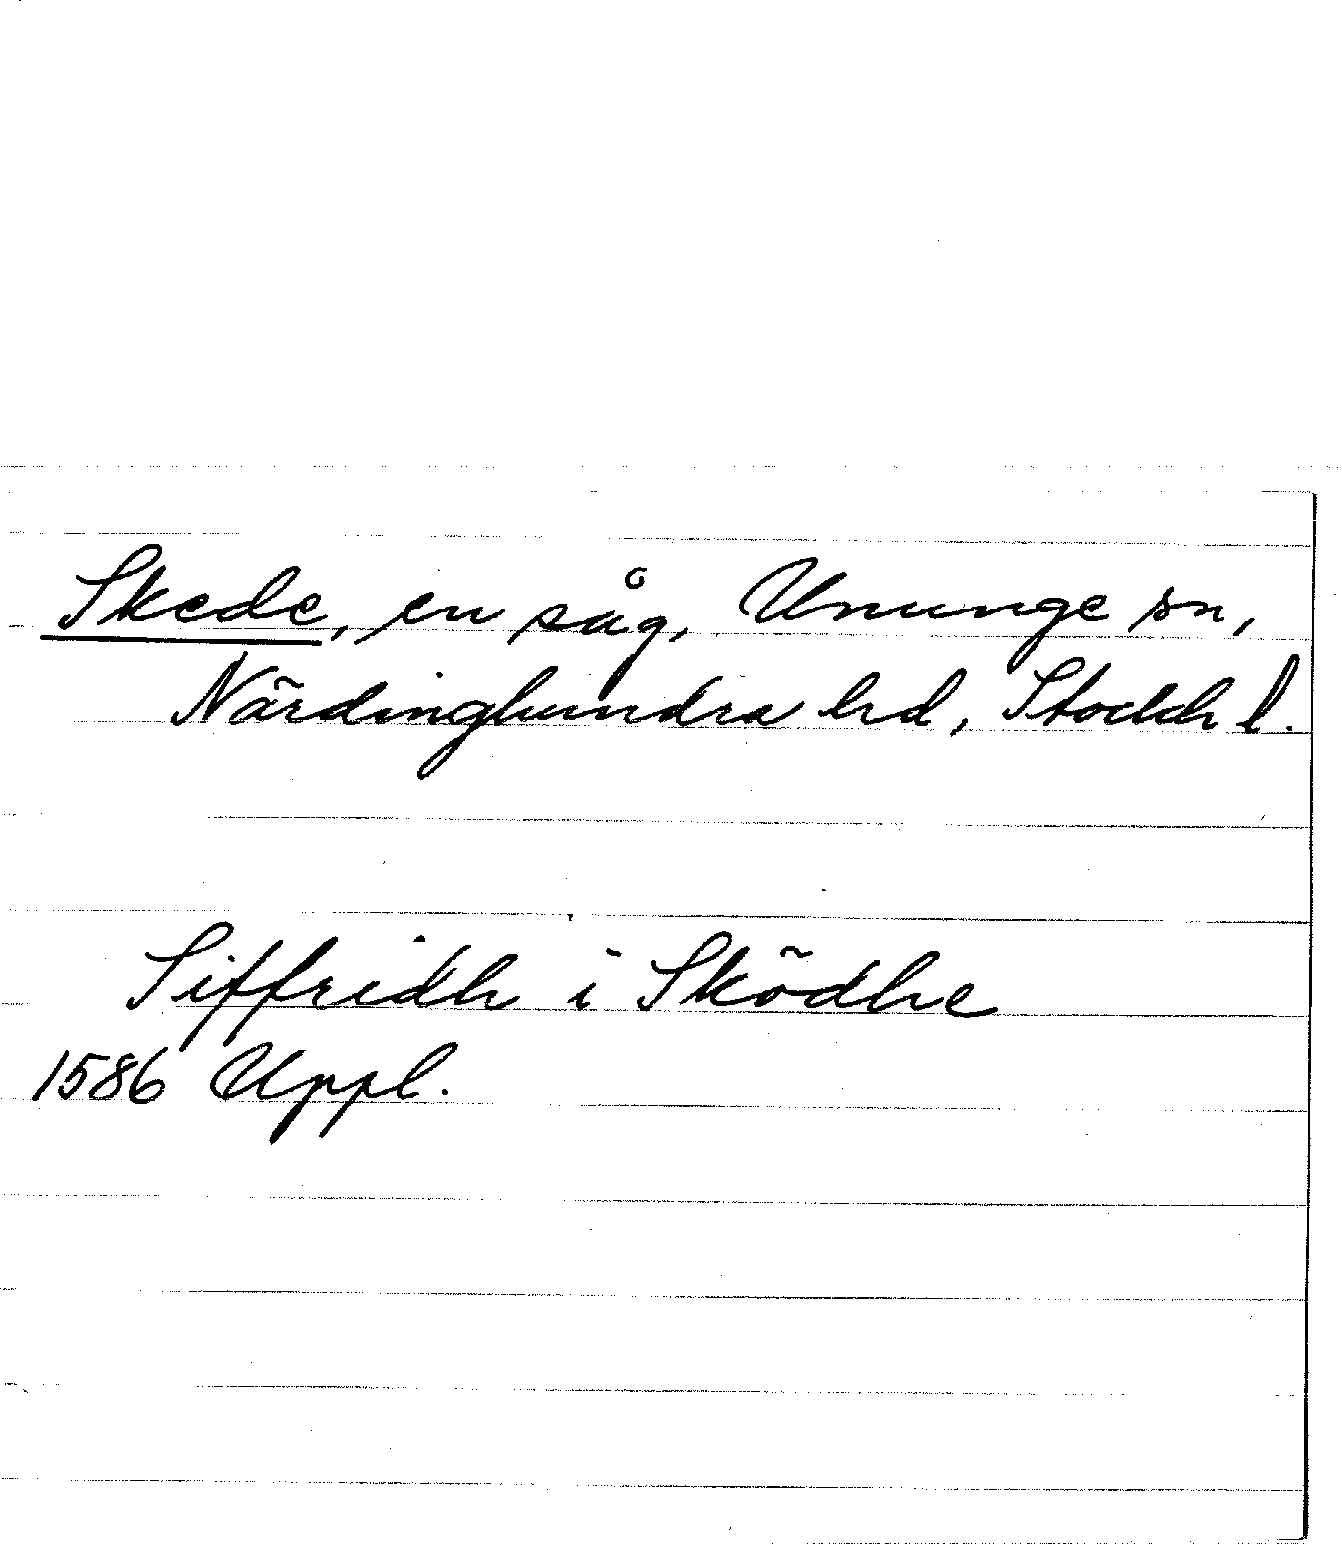 Skede, en såg, Ununge sn,
Närdinghundra hd, Stockh l.
Siffridh i Sködhe
1586 Uppl.